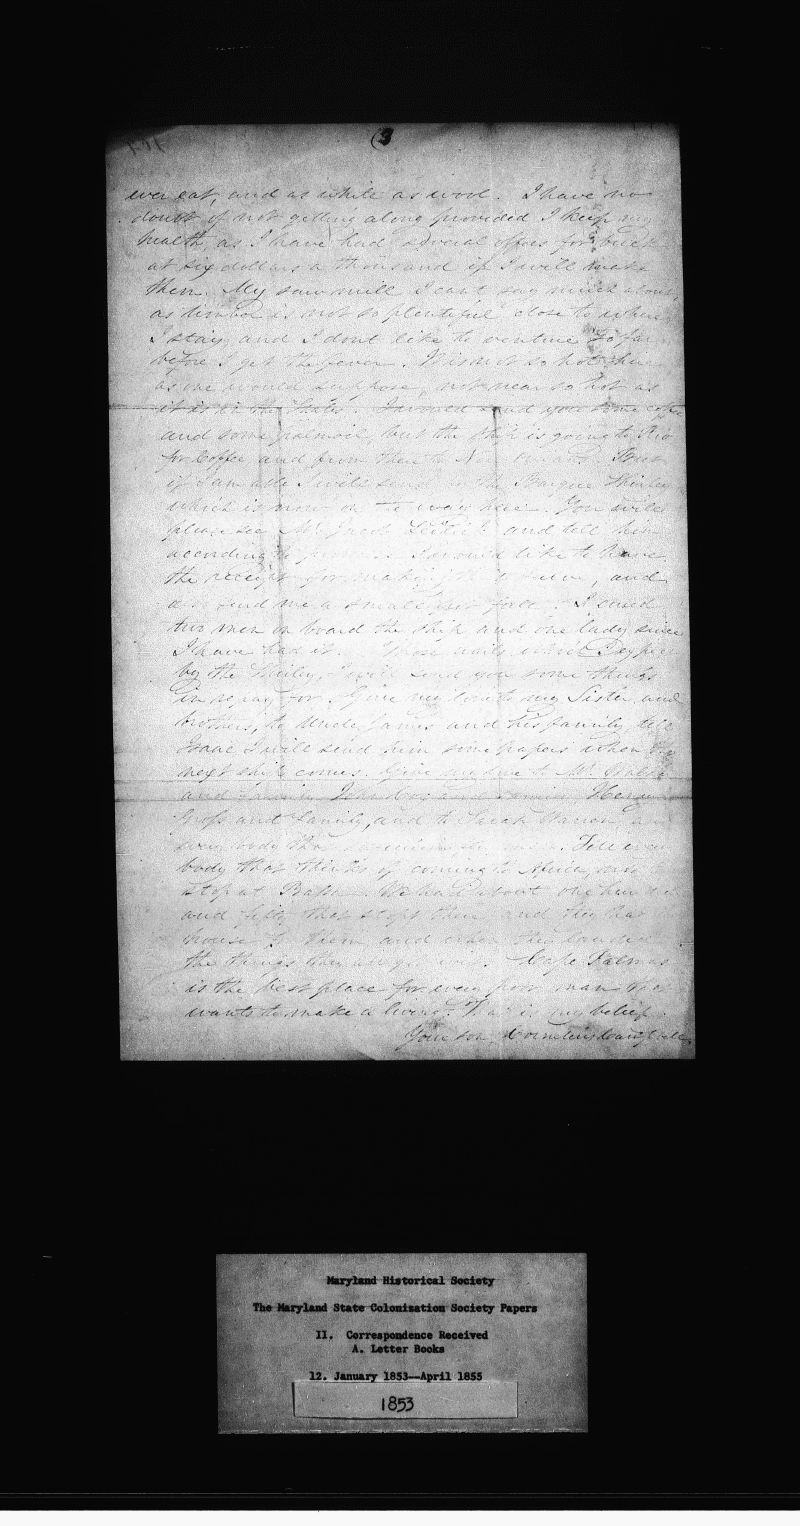 (3
ever eat, and as white as wool. I have no
doubt of not getting along provided I keep my
health, as I have had several offers for brick
at six dollars a thousand if I will make
them. My saw mill I cant say much about
as timber is not so plentiful close to where
I stay and I dont like to venture so far
before I get the fever. It is not so hot here
as one would suppose, not near so hot as
it is in the States. I would send you some coffe
and some palmoil, but the ship is going to Rio
for Coffee and from there to New But
if I am able I will send in the Barque Shirley
which is now on the way here. You will
please see Mr. Jacob and tell him
according to I would like to have
the receipt for making , and
send me a small . I cured
two men on board the ship and one lady since
I have had it. Those nails
by the Shirley, I will send you some things
in repay for. Give my love to my Sister and
brothers, to Uncle James and his family tell
Isaac I will send him some papers when the
next ship comes. Give my love to Mr.
and family John
Gross and family, and to Sarah Warren and
every body that . Tell every
body that thinks of coming to Africa, not
stop at Bassa. We had about one hundred
and fifty that stops there and they had
house to them and when they landed
the things they all got wet. Cape Palmas
is the best place for every poor man that
wants to make a living. That is my belief.
Your son, Cornelius
Maryland Historical Society
The Maryland State Colonization Society Papers
II. Correspondence Received
A. Letter Books
12. January 1853--April 1855
1853